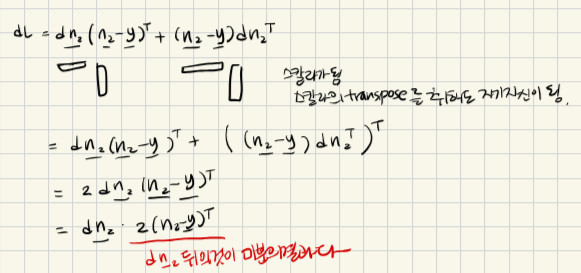 dL = dn₂(n₂-y)ᵀ + (n₂-y)dn₂ᵀ
스칼라가 됨
스칼라의 transpose를 취해도 자기자신이 됨.
= dn₂(n₂-y)ᵀ + ((n₂-y)dn₂ᵀ)ᵀ
= 2 dn₂ (n₂-y)ᵀ
= dn₂ · 2(n₂-y)ᵀ
dn₂ 뒤의것이 미분의결과다